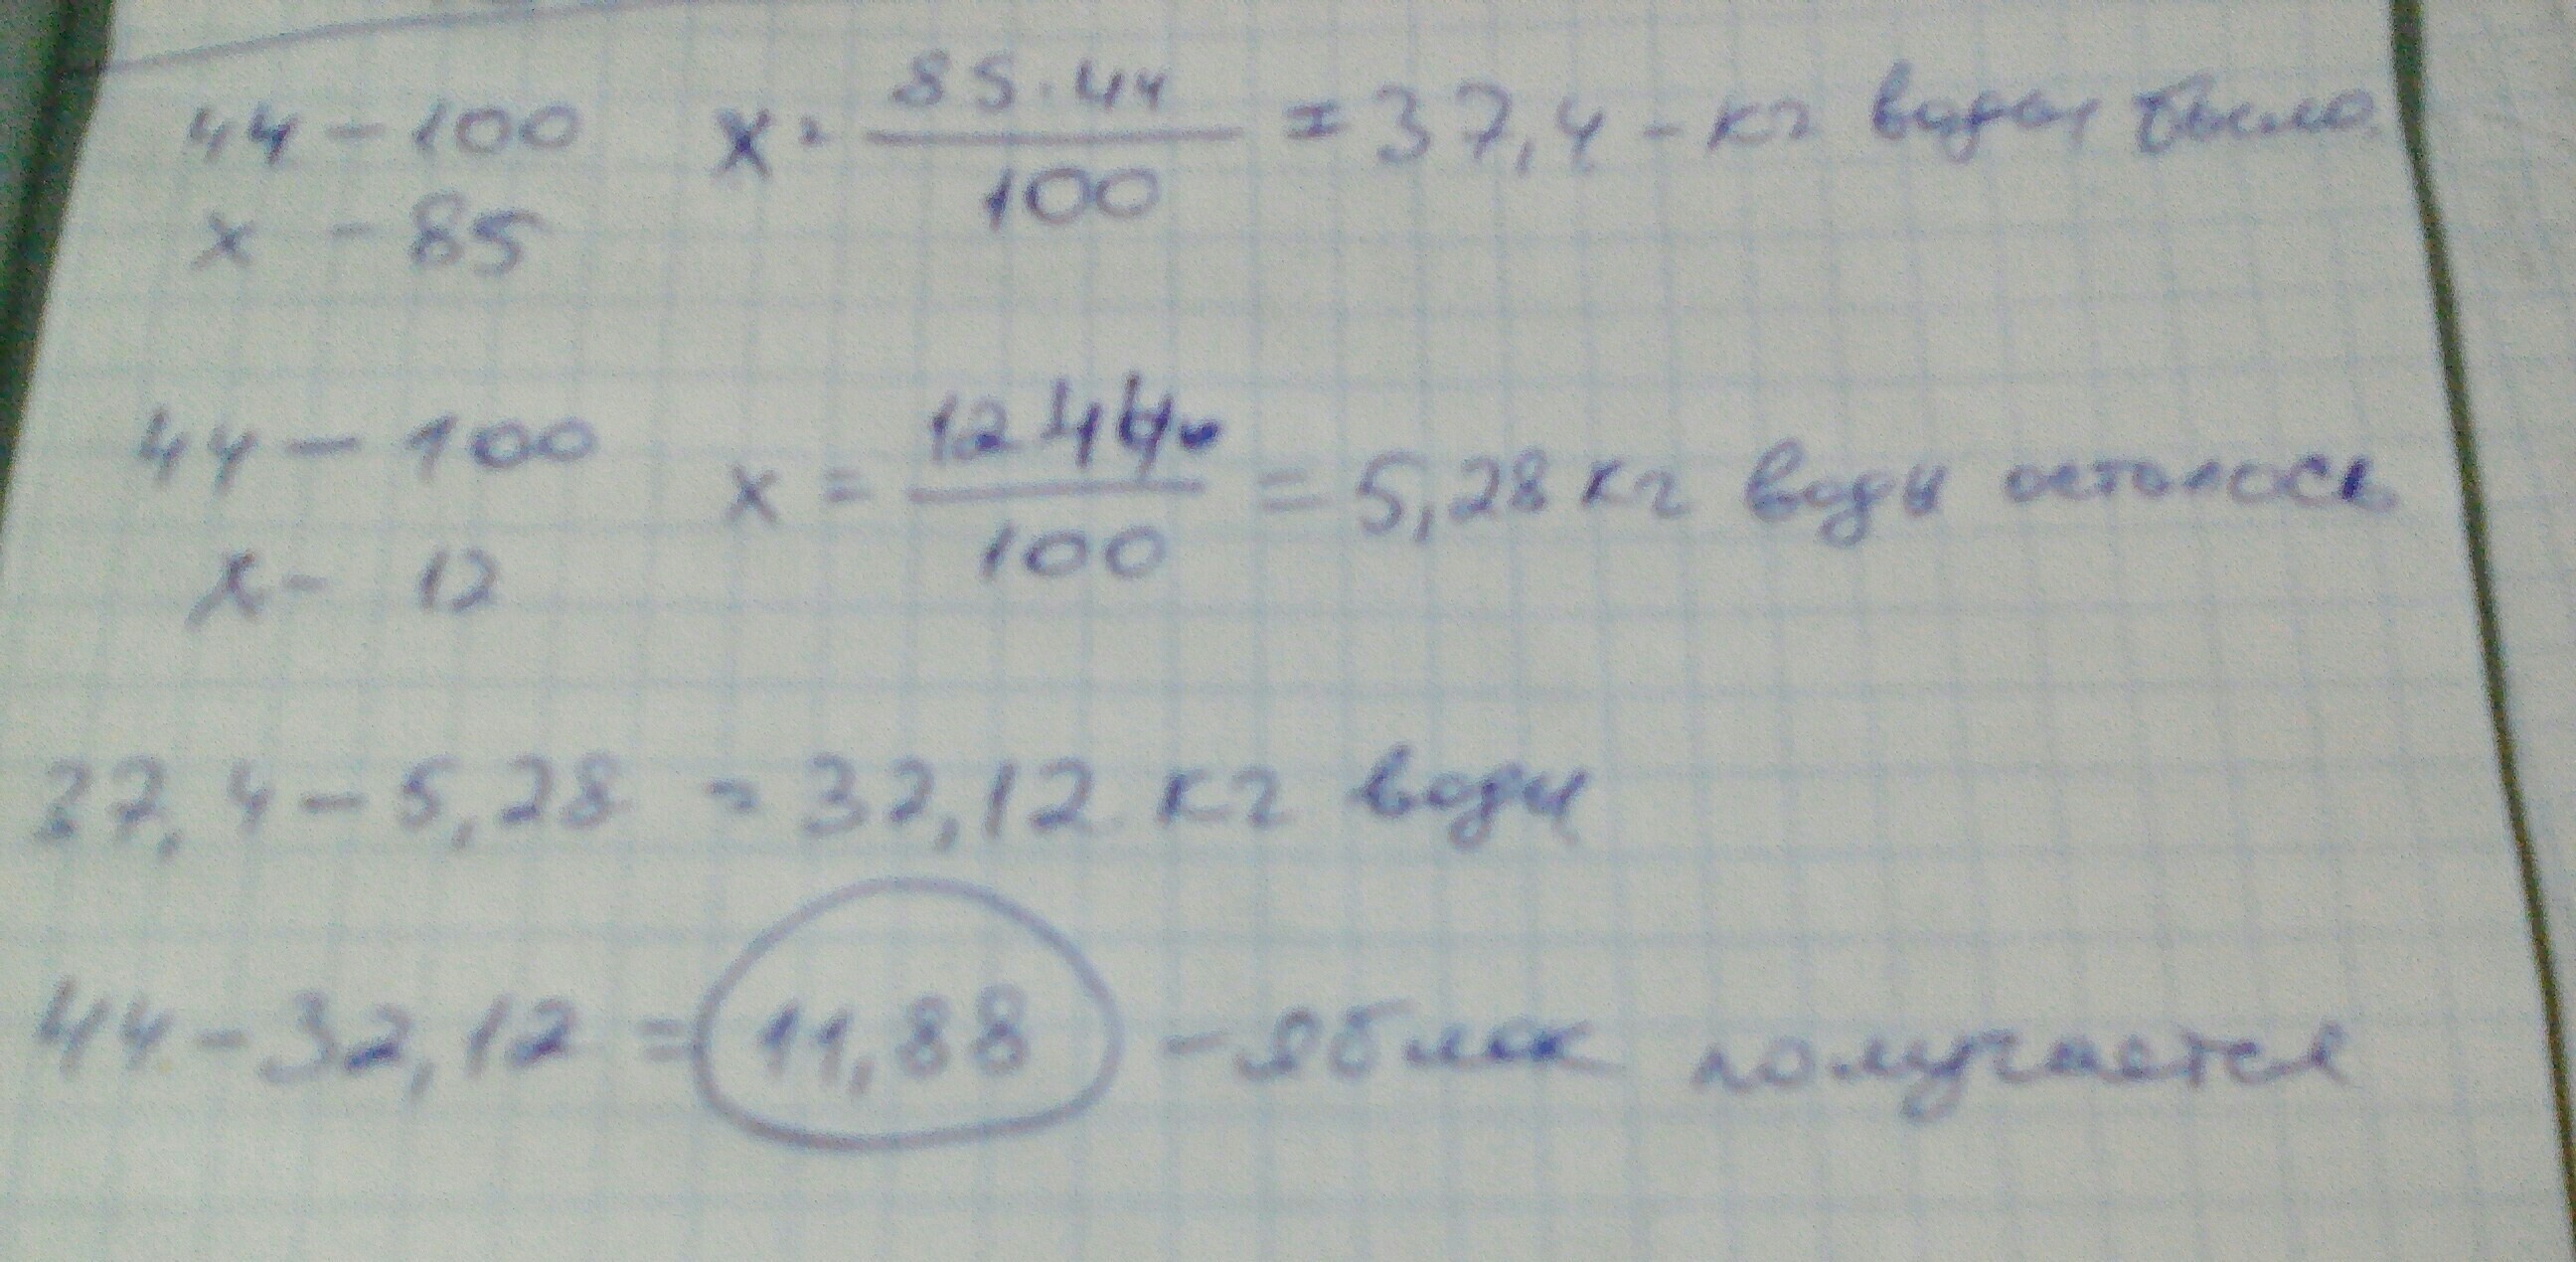 44 - 100 x = 85·44 / 100 = 37,4 - кг воды было.
x - 85
44 - 100 x = 12 44 / 100 = 5,28 кг воды осталось
x - 12
37,4 - 5,28 = 32,12 кг воды
44 - 32,12 = 11,88 - яблок получается